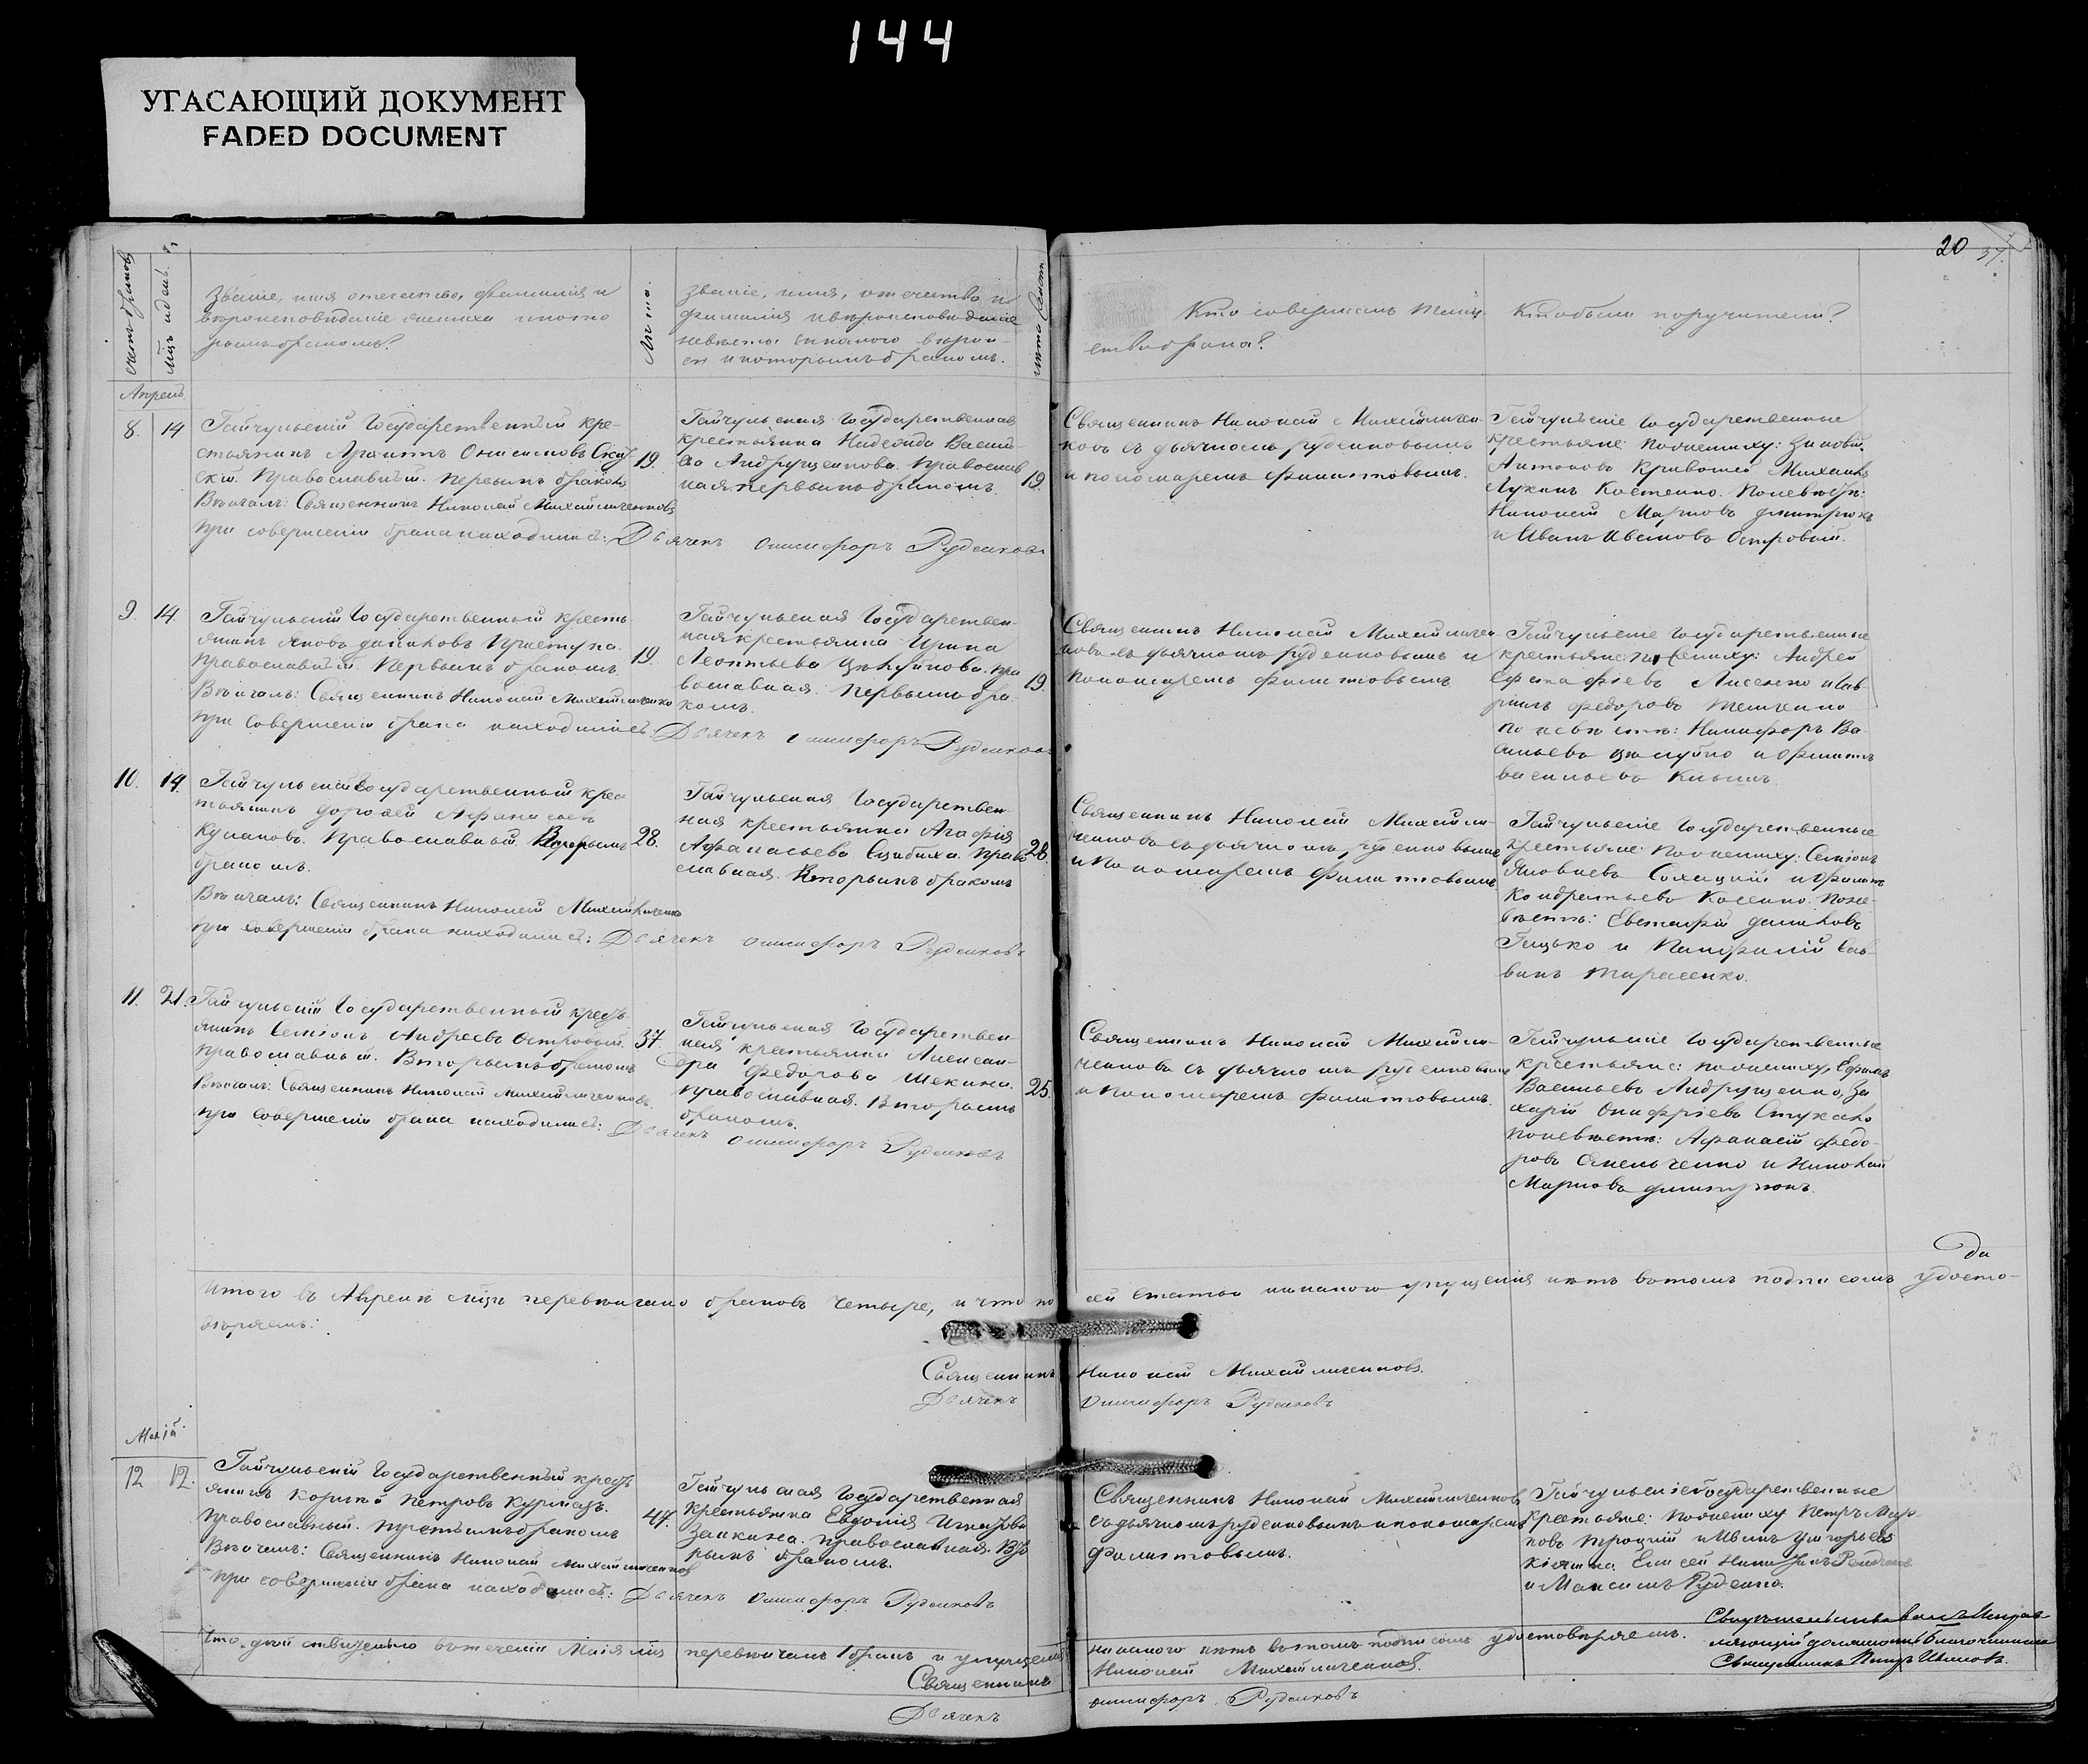 144
УГАСАЮЩИЙ ДОКУМЕНТ
FADED DOCUMENT
20 37.
счетъ браковъ
Мцъ и день.
Званіе, имя отечество, фамилія и
вѣроисповѣданіе жениха и кото
рымъ бракомъ?
Лѣта.
Званіе, имя, отечество и
фамилія и вѣроисповѣданіе
невѣсты
и которымъ бракомъ.
лѣта невѣсты
Кто совершалъ таин
ство брака?
Кто были поручители?
Апрель
8. 14
Гайчульскій Государственный кре-
стьянинъ Онисимовъ
Православный. первымъ бракомъ
19.
Вѣнчалъ: Священникъ Николай Михайличенковъ
при совершеніи брака находились: Дьячекъ Онисифоръ Руденковъ
Гайчульская Государственная
крестьянка Надежда Василь
ева Андрущенкова. Православ
ная. первымъ бракомъ.
19.
Священникъ Николай Михайличен
ковъ съ дьячкомъ Руденковымъ
и пономаремъ Филатовымъ.
Гайчульскіе Государственные
крестьяне: По жениху: Зиновій
Антоновъ Кривошей Михаилъ
Лукинъ Костенко. По невѣстѣ:
Николай Марковъ Дмитрюкъ
и Иванъ Ивановъ Островой.
9. 14.
Гайчульскій Государственный кресть
янинъ Яковъ Даниловъ Приступа.
Православный. Первымъ бракомъ.
19.
Вѣнчалъ: Священникъ Николай Михайличенко
при совершеніи брака находились: Дьячекъ Онисифоръ Руденковъ
Гайчульская Государствен-
ная крестьянка Ирина
Леонтьева Цѣлуйкова. Пра
вославная. Первымъ бра-
комъ.
19.
Священникъ Николай Михайличен
ковъ съ дьячкомъ Руденковымъ и
Пономаремъ Филатовымъ
Гайчульскіе Государственные
крестьяне: По жениху: Андрей
Лисенко и Гав-
рилъ Федоровъ
по невѣстѣ: Никифоръ Ва-
сильевъ Цѣлуйко и Филипъ
Васильевъ
10. 14.
Гайчульскій Государственный крес
тьянинъ Дорофей Афанасьевъ
Кулаковъ. Православный. Вторымъ
бракомъ.
28.
Вѣнчалъ: Священникъ Николай Михайличенко
при совершеніи брака находились: Дьячекъ Онисифоръ Руденковъ
Гайчульская Государствен-
ная крестьянка Агафія
Афанасьева Право
славная. Вторымъ бракомъ
28.
Священникъ Николай Михайли-
ченковъ съ дьячкомъ Руденковымъ
и Пономаремъ Филатовымъ
Гайчульскіе Государственные
крестьяне: По жениху: Семіонъ
Яковлевъ и Филипъ
Кондратьевъ Косенко. По не-
вѣстѣ: Евстафій Даниловъ
Гицько и Памфилій Сав-
винъ Тарасенко.
11. 21.
Гайчульскій Государственный кресть
янинъ Семіонъ Андреевъ Островой.
Православный. Вторымъ бракомъ
37.
Вѣнчалъ: Священникъ Николай Михайличенковъ.
при совершеніи брака находились: Дьячекъ Онисифоръ Руденковъ
Гайчульская Государствен-
ная крестьянка Алексан-
дра Федорова Шекина.
Православная. Вторымъ
бракомъ.
25.
Священникъ Николай Михайли-
ченковъ съ дьячкомъ Руденковымъ
и Пономаремъ Филатовымъ.
Гайчульскіе Государственные
крестьяне: по жениху, Ефимъ
Васильевъ Андрущенко, За
харій Онуфріевъ
По невѣстѣ: Афанасій Федо-
ровъ Омельченко и Николай
Марковъ Дмитрюкъ.
Итого въ Апрелѣ мцѣ перевѣнчано браковъ четыре, и что по сей статьи никакого упущенія нѣтъ въ томъ подписомъ удосто-
вѣряемъ:
Священникъ Николай Михайличенковъ.
Дьячекъ Онисифоръ Руденковъ
Маій
12 12.
Гайчульскій Государственный кресть
янинъ Корнѣй Петровъ Курмазъ.
Православный. третьимъ бракомъ
47.
Вѣнчалъ: Священникъ Николай Михайличенковъ
при совершеніи брака находились: Дьячекъ Онисифоръ Руденковъ
Гайчульская Государственная
крестьянка Евдокія Игнатова
Заикина. православная. Вто
рымъ бракомъ.
Священникъ Николай Михайличенковъ
съ дьячкомъ Руденковымъ и пономаремъ
Филатовымъ.
Гайчульскіе Государственные
крестьяне: по жениху Петръ Мар-
ковъ Троцкій и Иванъ Григорьевъ
Елисей
и Максимъ Руденко.
Что въ теченіи Маія мца перевѣнчанъ 1 бракъ и упущенія никакого нѣтъ въ томъ подписомъ удостовѣряемъ.
Священникъ Николай Михайличенковъ.
Дьячекъ Онисифоръ Руденковъ
Свидѣтельствовалъ Исправ
ляющій должность благочиннаго
Священникъ Петръ Ивановъ.